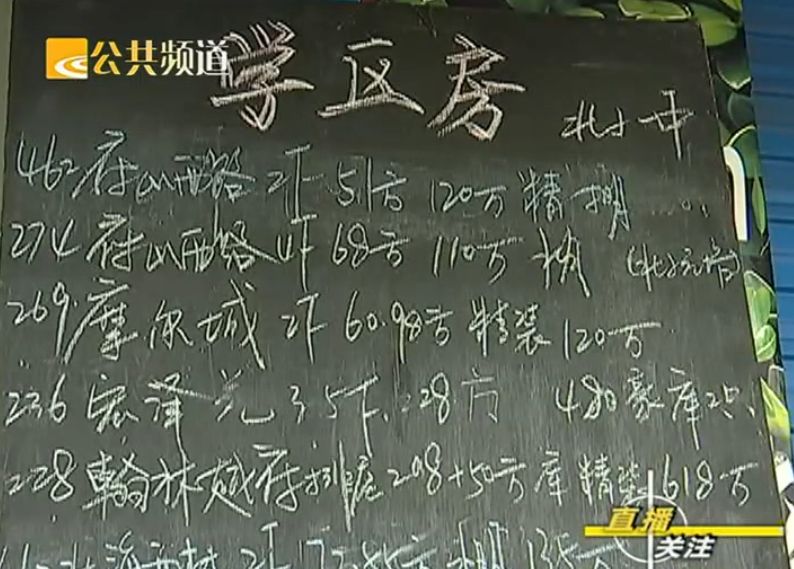 公共频道
学区房
462 府山西路 2F 51方 120万 精
274 府山西路 4F 68方 110万
269. 摩尔城 2F 60.98方 精装 120万
236 宏泽 3.5F 228方 480 豪 库
228 翰林 府 排屋 208+50方 库 精装 618万
直播
关注